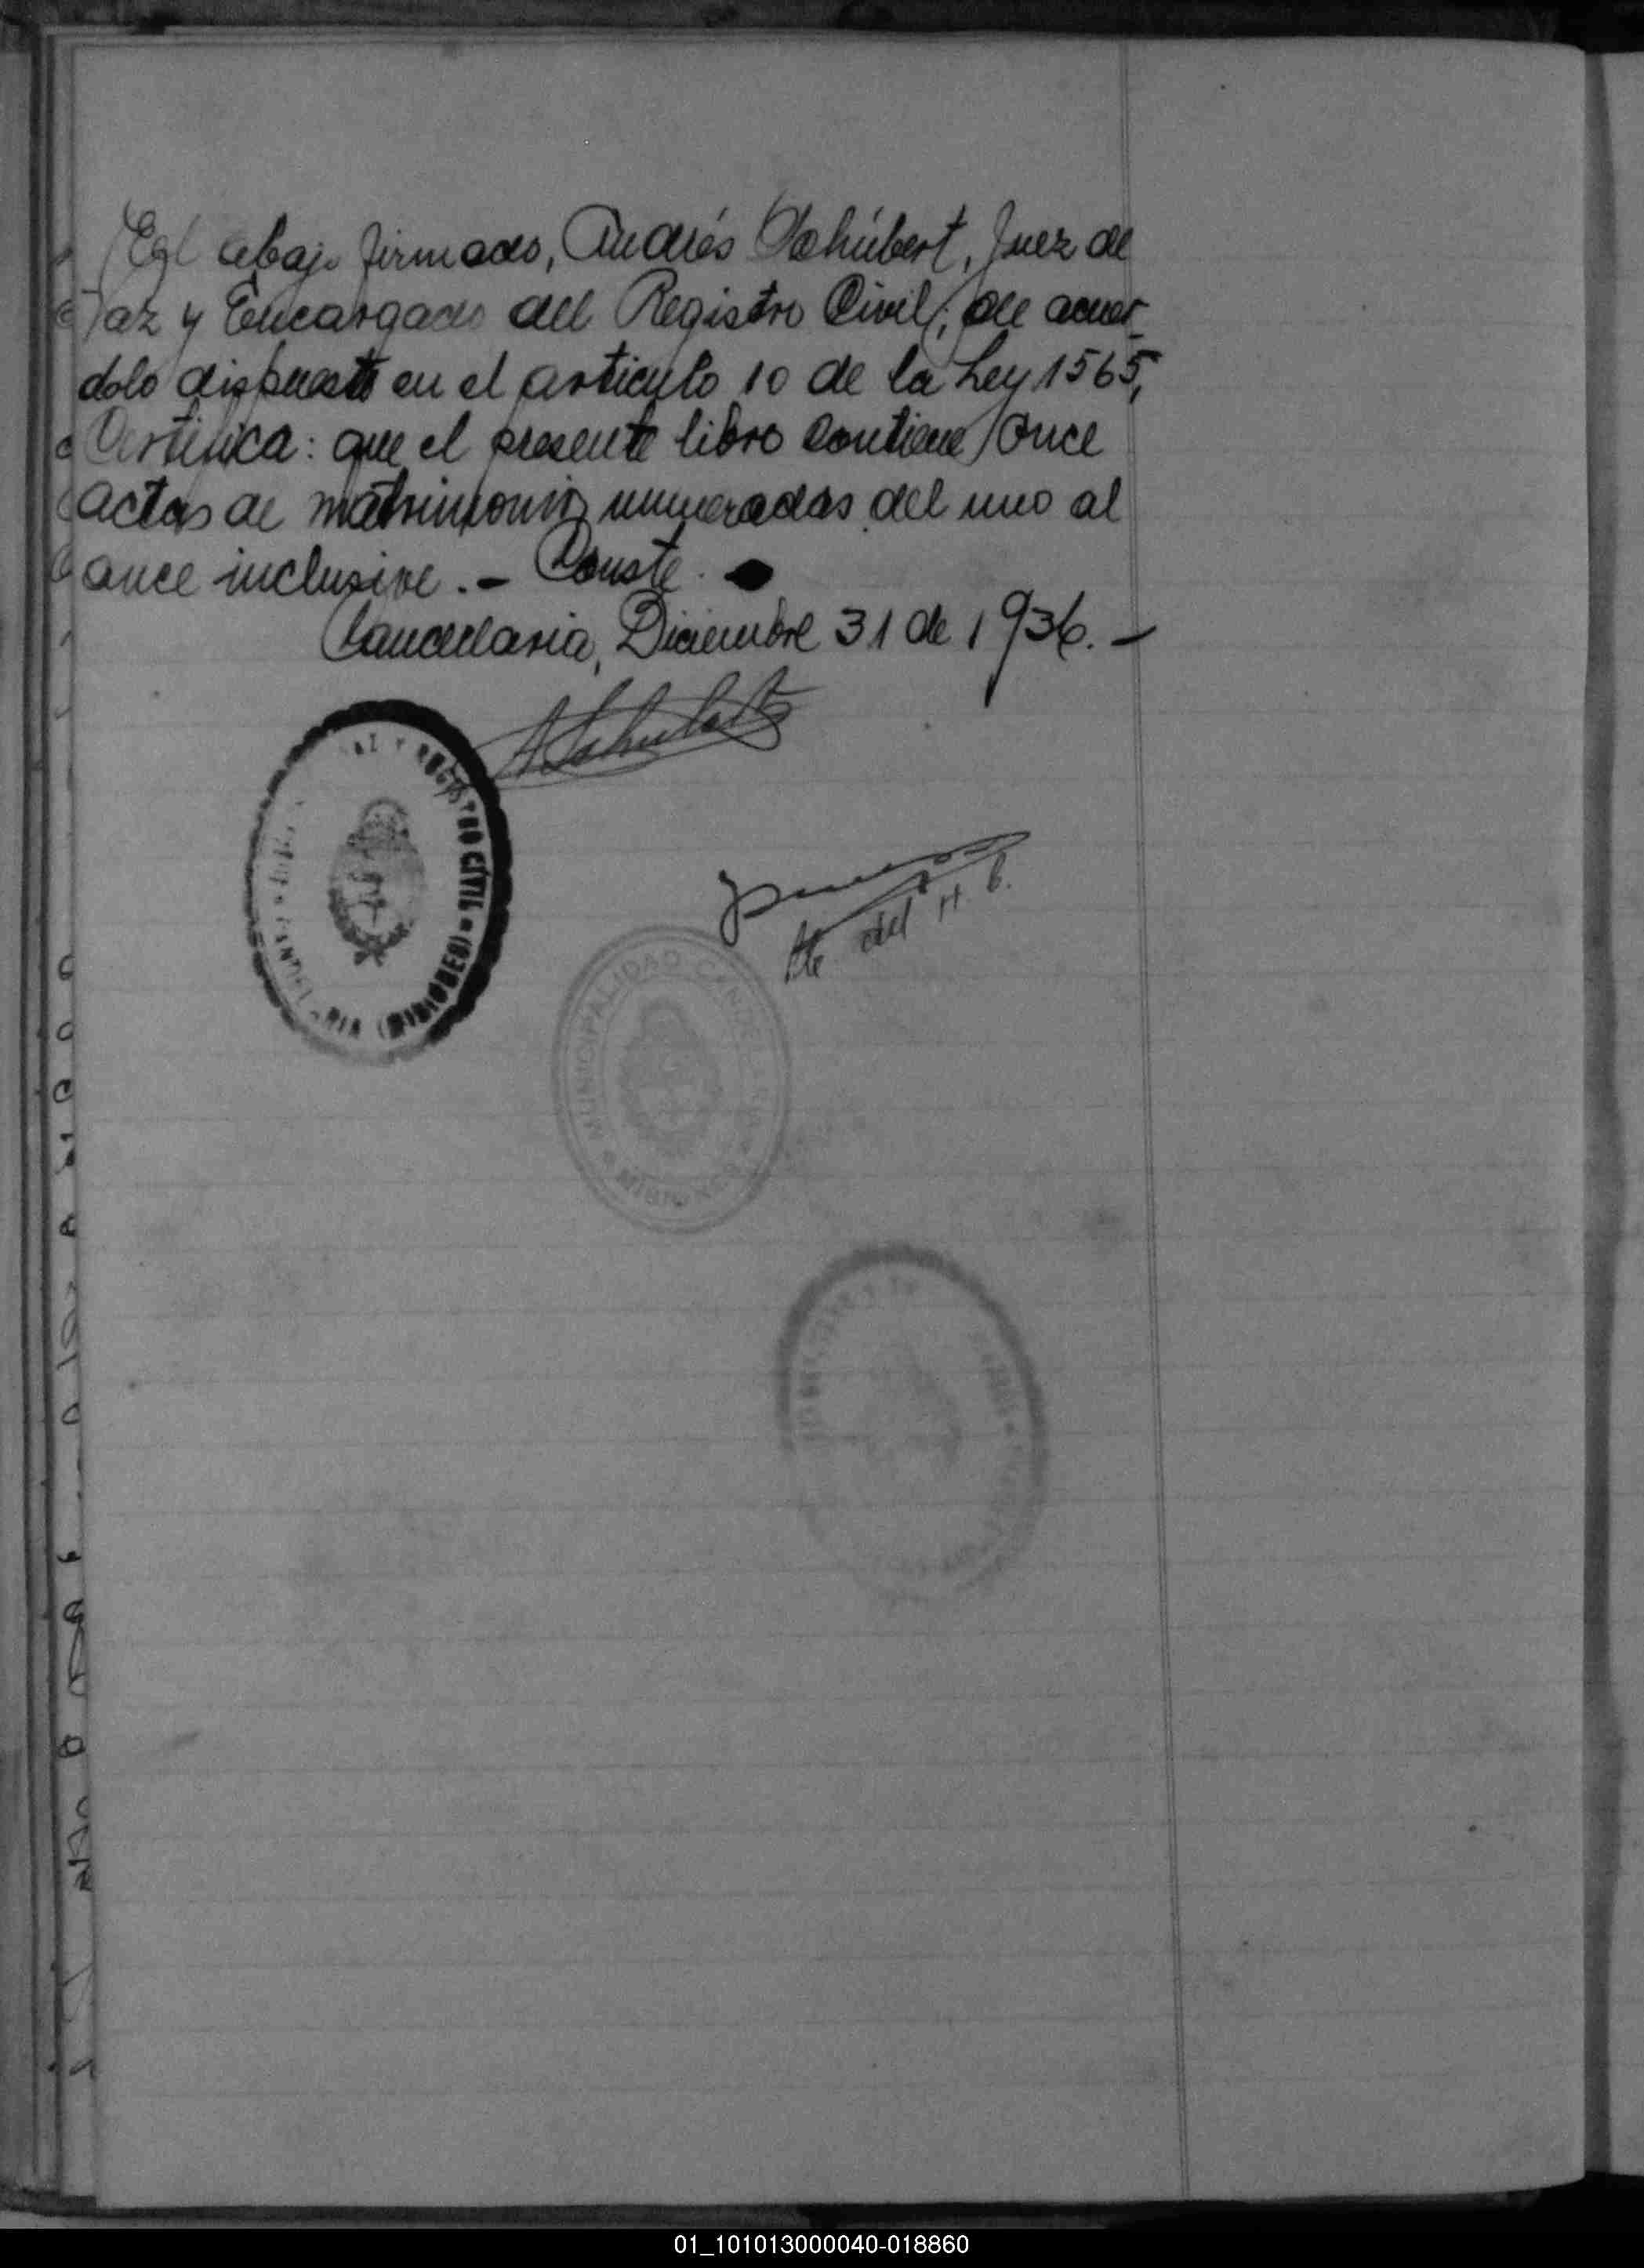 El abajo firmado, Andrés Schúbert, Juez de
Paz y Encargado del Registro Civil, de acuer-
dolo dispuesto en el articulo 10 de la Ley 1565,
Certifica: que el presente libro contiene once
actas de matrimonio numeradas del uno al
once inclusive.- Conste.
Candelaria, Diciembre 31 de 1936.-
ASchubert
AZ Y REGISTRO CIVIL
CANDELARIA (MISIONES)
Pte del H. C.
MUNICIPALIDAD CANDELARIA
MISIONES
01_101013000040-018860